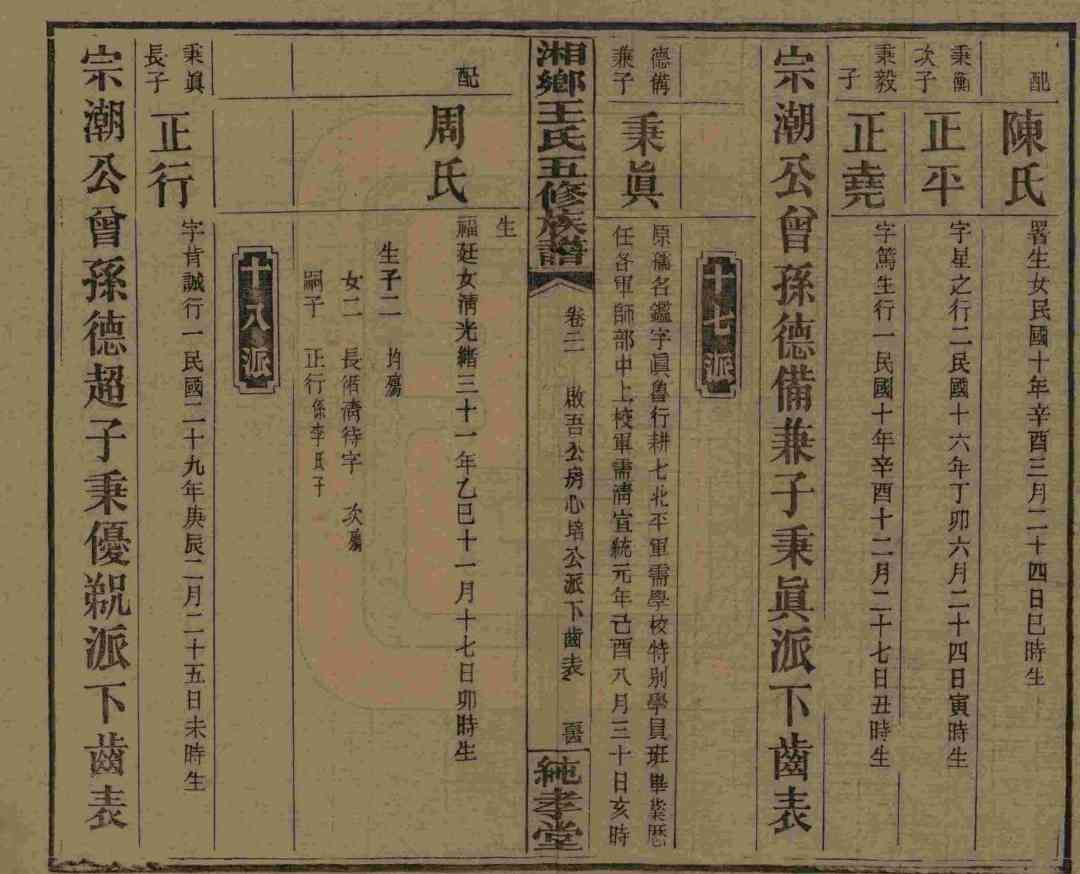 配
陳氏
署生女民國十年辛酉三月二十四日巳時生
秉衡次子
正平
字星之行二民國十六年丁卯六月二十四日寅時生
秉毅子
正堯
字篤生行一民國十年辛酉十二月二十七日丑時生
宗潮公曾孫德備兼子秉眞派下齒表
十七派
德備兼子
秉眞
原名鑑字眞魯行耕七北平軍需學校特別學員班畢業歷
任各軍師部中上校軍需淸宣統元年己酉八月三十日亥時
湘鄉王氏五修族譜
卷二
啟吾公房心培公派下齒表
純孝堂
生
配
周氏
福廷女淸光緒三十一年乙巳十一月十七日卯時生
生子二 均殤
女二 長 淸待字 次殤
嗣子 正行係李氏子
十八派
秉眞長子
正行
字肯誠行一民國二十九年庚辰二月二十五日未時生
宗潮公曾孫德超子秉優 派下齒表